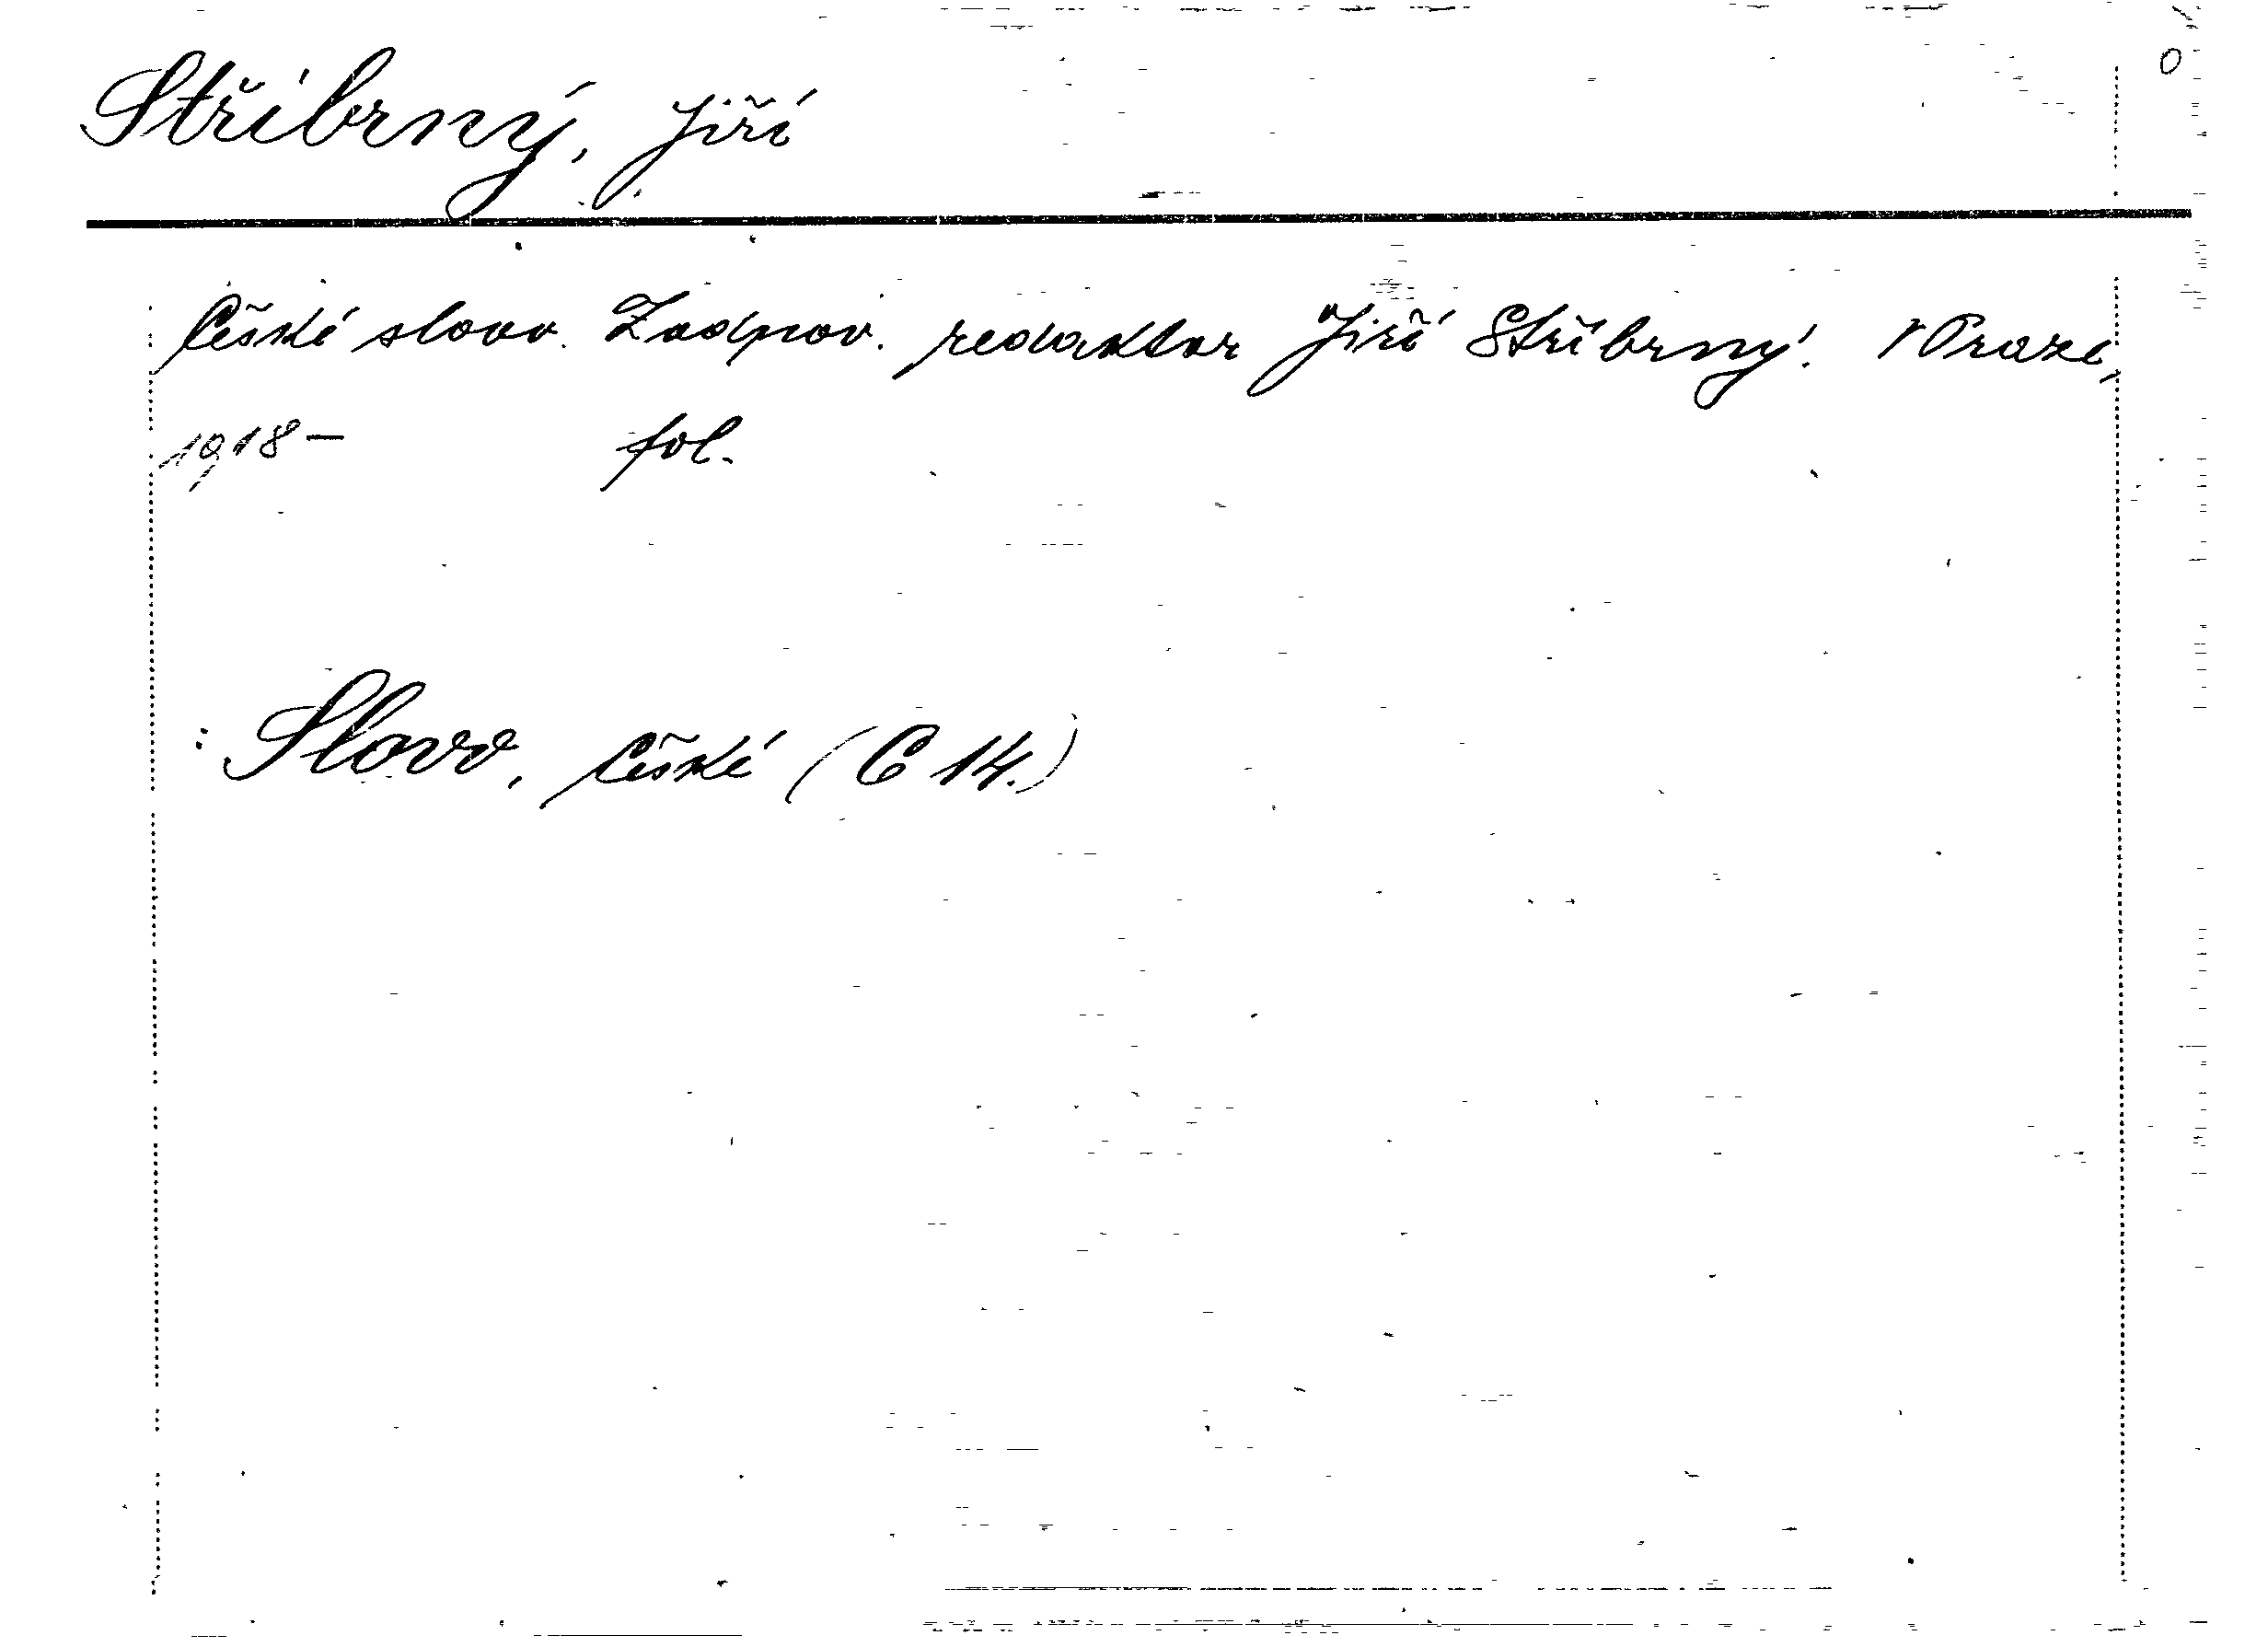 Stříbrný, Jiří
České slovo. Zodpov. redaktor Jiří Stříbrný. V Praze,
1918— fol.
: Slovo, České (C 14.)